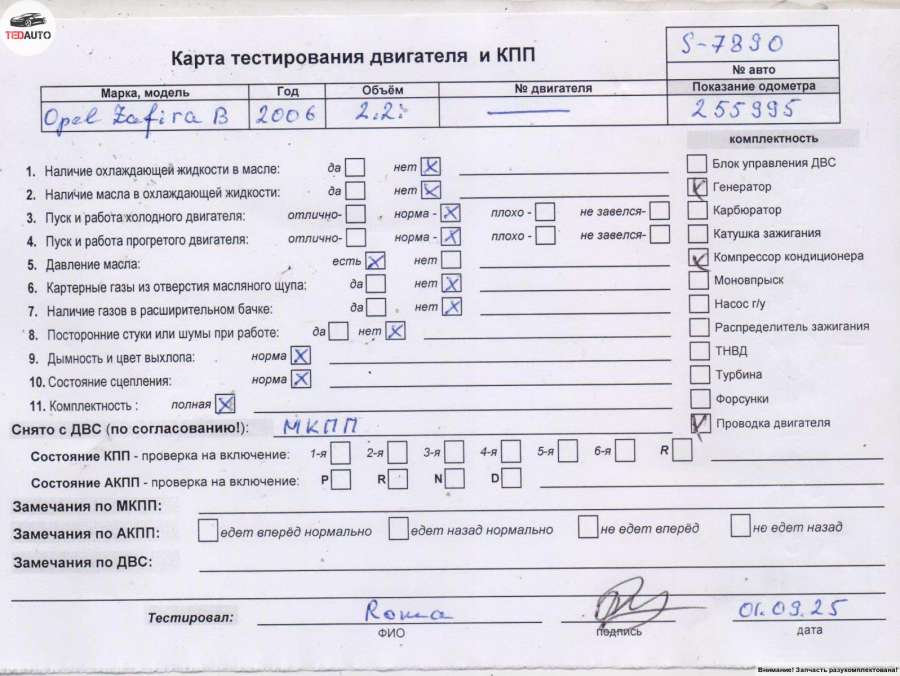 TEDAUTO
Карта тестирования двигателя и КПП
S-7890
№ авто
Марка, модель Год Объём № двигателя Показание одометра
Opel Zafira B 2006 2.2i 255995
комплектность
1. Наличие охлаждающей жидкости в масле: да нет
2. Наличие масла в охлаждающей жидкости: да нет
3. Пуск и работа холодного двигателя: отлично- норма - плохо - не завелся-
4. Пуск и работа прогретого двигателя: отлично- норма - плохо - не завелся-
5. Давление масла: есть нет
6. Картерные газы из отверстия масляного щупа: да нет
7. Наличие газов в расширительном бачке: да нет
8. Посторонние стуки или шумы при работе: да нет
9. Дымность и цвет выхлопа: норма
10. Состояние сцепления: норма
11. Комплектность : полная
Блок управления ДВС
Генератор
Карбюратор
Катушка зажигания
Компрессор кондиционера
Моновпрыск
Насос г/у
Распределитель зажигания
ТНВД
Турбина
Форсунки
Проводка двигателя
Снято с ДВС (по согласованию!): МКПП
Состояние КПП - проверка на включение: 1-я 2-я 3-я 4-я 5-я 6-я R
Состояние АКПП - проверка на включение: P R N D
Замечания по МКПП:
Замечания по АКПП: едет вперёд нормально едет назад нормально не едет вперёд не едет назад
Замечания по ДВС:
Тестировал: Рома 01.09.25
ФИО подпись дата
Внимание! Запчасть разукомплектована!